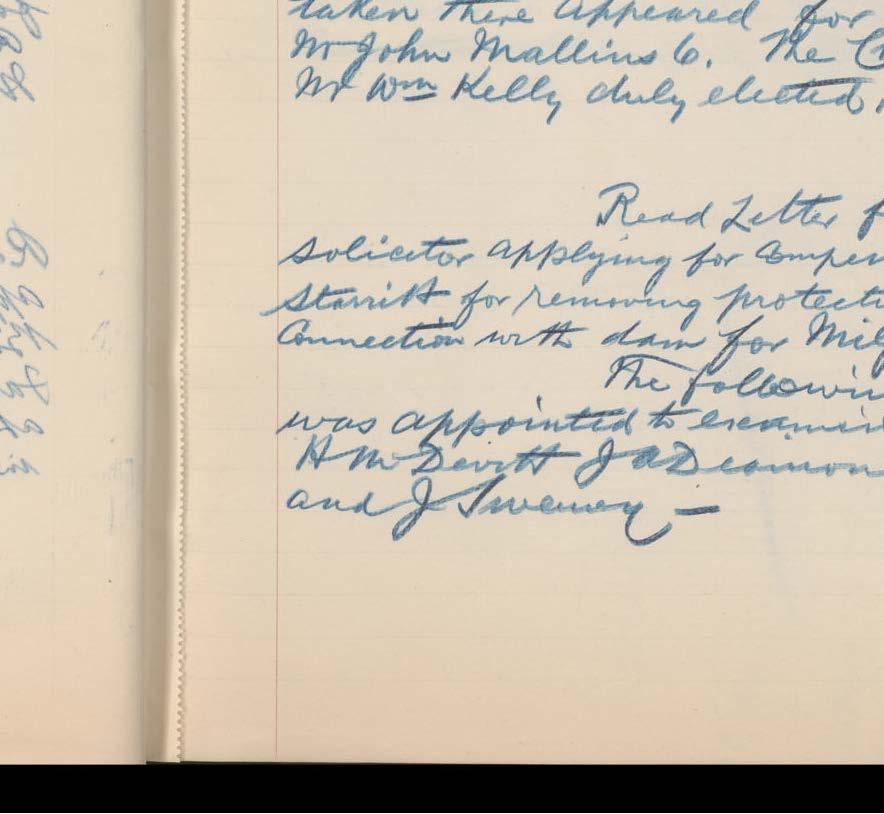 taken there appeared for
Mr John Mallins 6. The C
Mr Wm Kelly duly elected
Read Letter f
solicitor applying for Compen
Starritt for removing protecti
Connection with dam for Mil
The followin
was appointed to examin
H McDevitt J A Deamon
and J Sweeney —